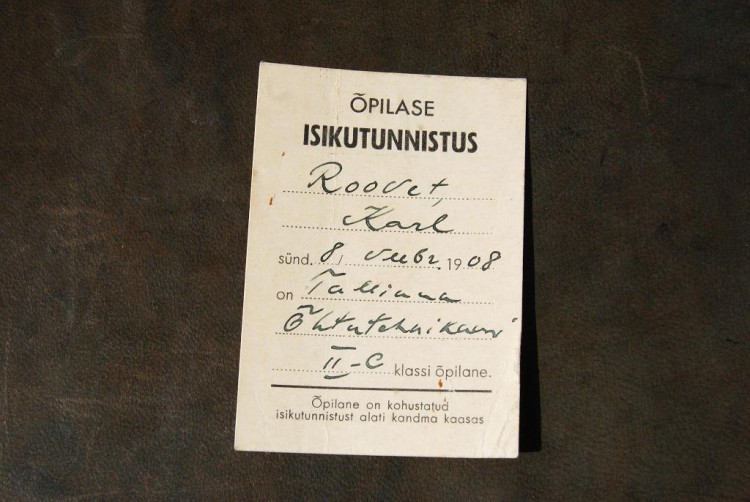 ÕPILASE
ISIKUTUNNISTUS
Roovet,
Karl
sünd. 8, veebr. 1908
on Tallinna
Õhtutehnikumi
II-C klassi õpilane.
Õpilane on kohustatud
isikutunnistust alati kandma kaasas